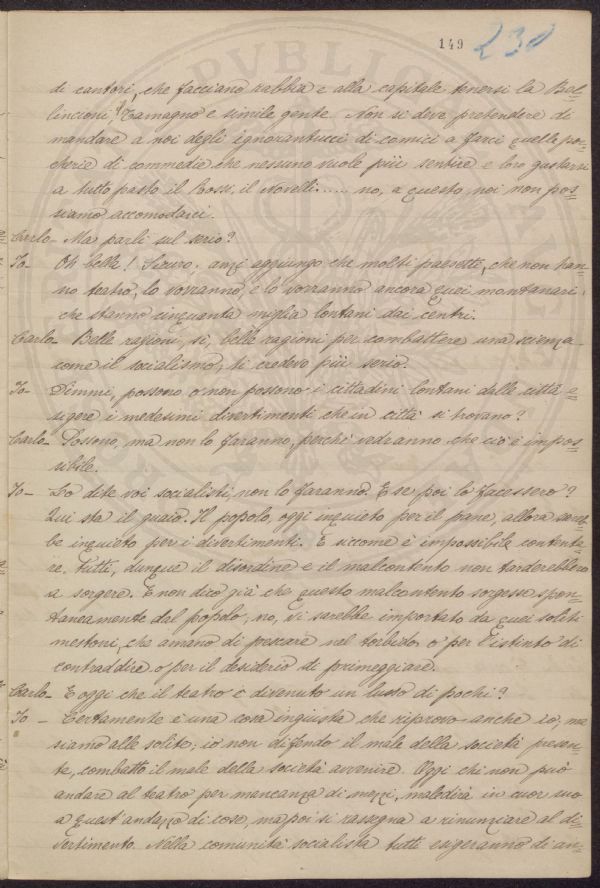 149 230
di cantori, che facciano rabbia e alla capitale tenersi la Bel=
lincioni, Tamagno e simile gente. Non si deve pretendere di
mandare a noi degli ignorantucci di comici a farci quelle por=
cherie di commedie che nessuno vuole più sentire e loro gustarsi
a tutto pasto il Rossi, il Novelli...... no, a questo noi non pos=
siamo accomodarci.
Carlo - Ma parli sul serio?
Io - Oh bella! Sicuro; anzi aggiungo che molti paesetti, che non han=
no teatro, lo vorranno, e lo vorranno ancora quei montanari
che stanno cinquanta miglia lontani dai centri.
Carlo - Belle ragioni, sì, belle ragioni per combattere una scienza
come il socialismo; ti credevo più serio.
Io - Dimmi, possono o non possono i cittadini lontani dalle città e=
sigere i medesimi divertimenti che in città si trovano?
Carlo - Possono, ma non lo faranno, perchè vedranno che ciò è impos=
sibile.
Io - Lo dite voi socialisti, non lo faranno. E se poi lo facessero?
Qui sta il guaio. Il popolo, oggi inquieto per il pane, allora sareb=
be inquieto per i divertimenti. E siccome è impossibile contenta=
re tutti, dunque il disordine e il malcontento non tarderebbero
a sorgere. E non dico già che questo malcontento sorgesse spon=
taneamente dal popolo; no, vi sarebbe importato da quei soliti
mestoni, che amano di pescare nel torbido o per l'istinto di
contraddire o per il desiderio di primeggiare.
Carlo - E oggi che il teatro è divenuto un lusso di pochi?
Io - Certamente è una cosa ingiusta che riprovo anche io, ma
siamo alle solite; io non difendo il male della società presen=
te, combatto il male della società avvenire. Oggi chi non può
andare al teatro per mancanza di mezzi, maledirà in cuor suo
a quest'andazzo di cose, ma poi si rassegna a rinunziare al di=
vertimento. Nella comunità socialista tutti esigeranno di an=